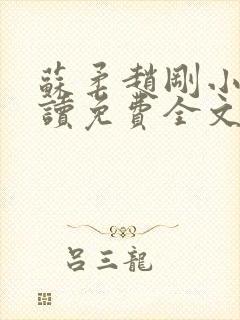 蘇柔趙剛小
讀免費全文
呂三龍